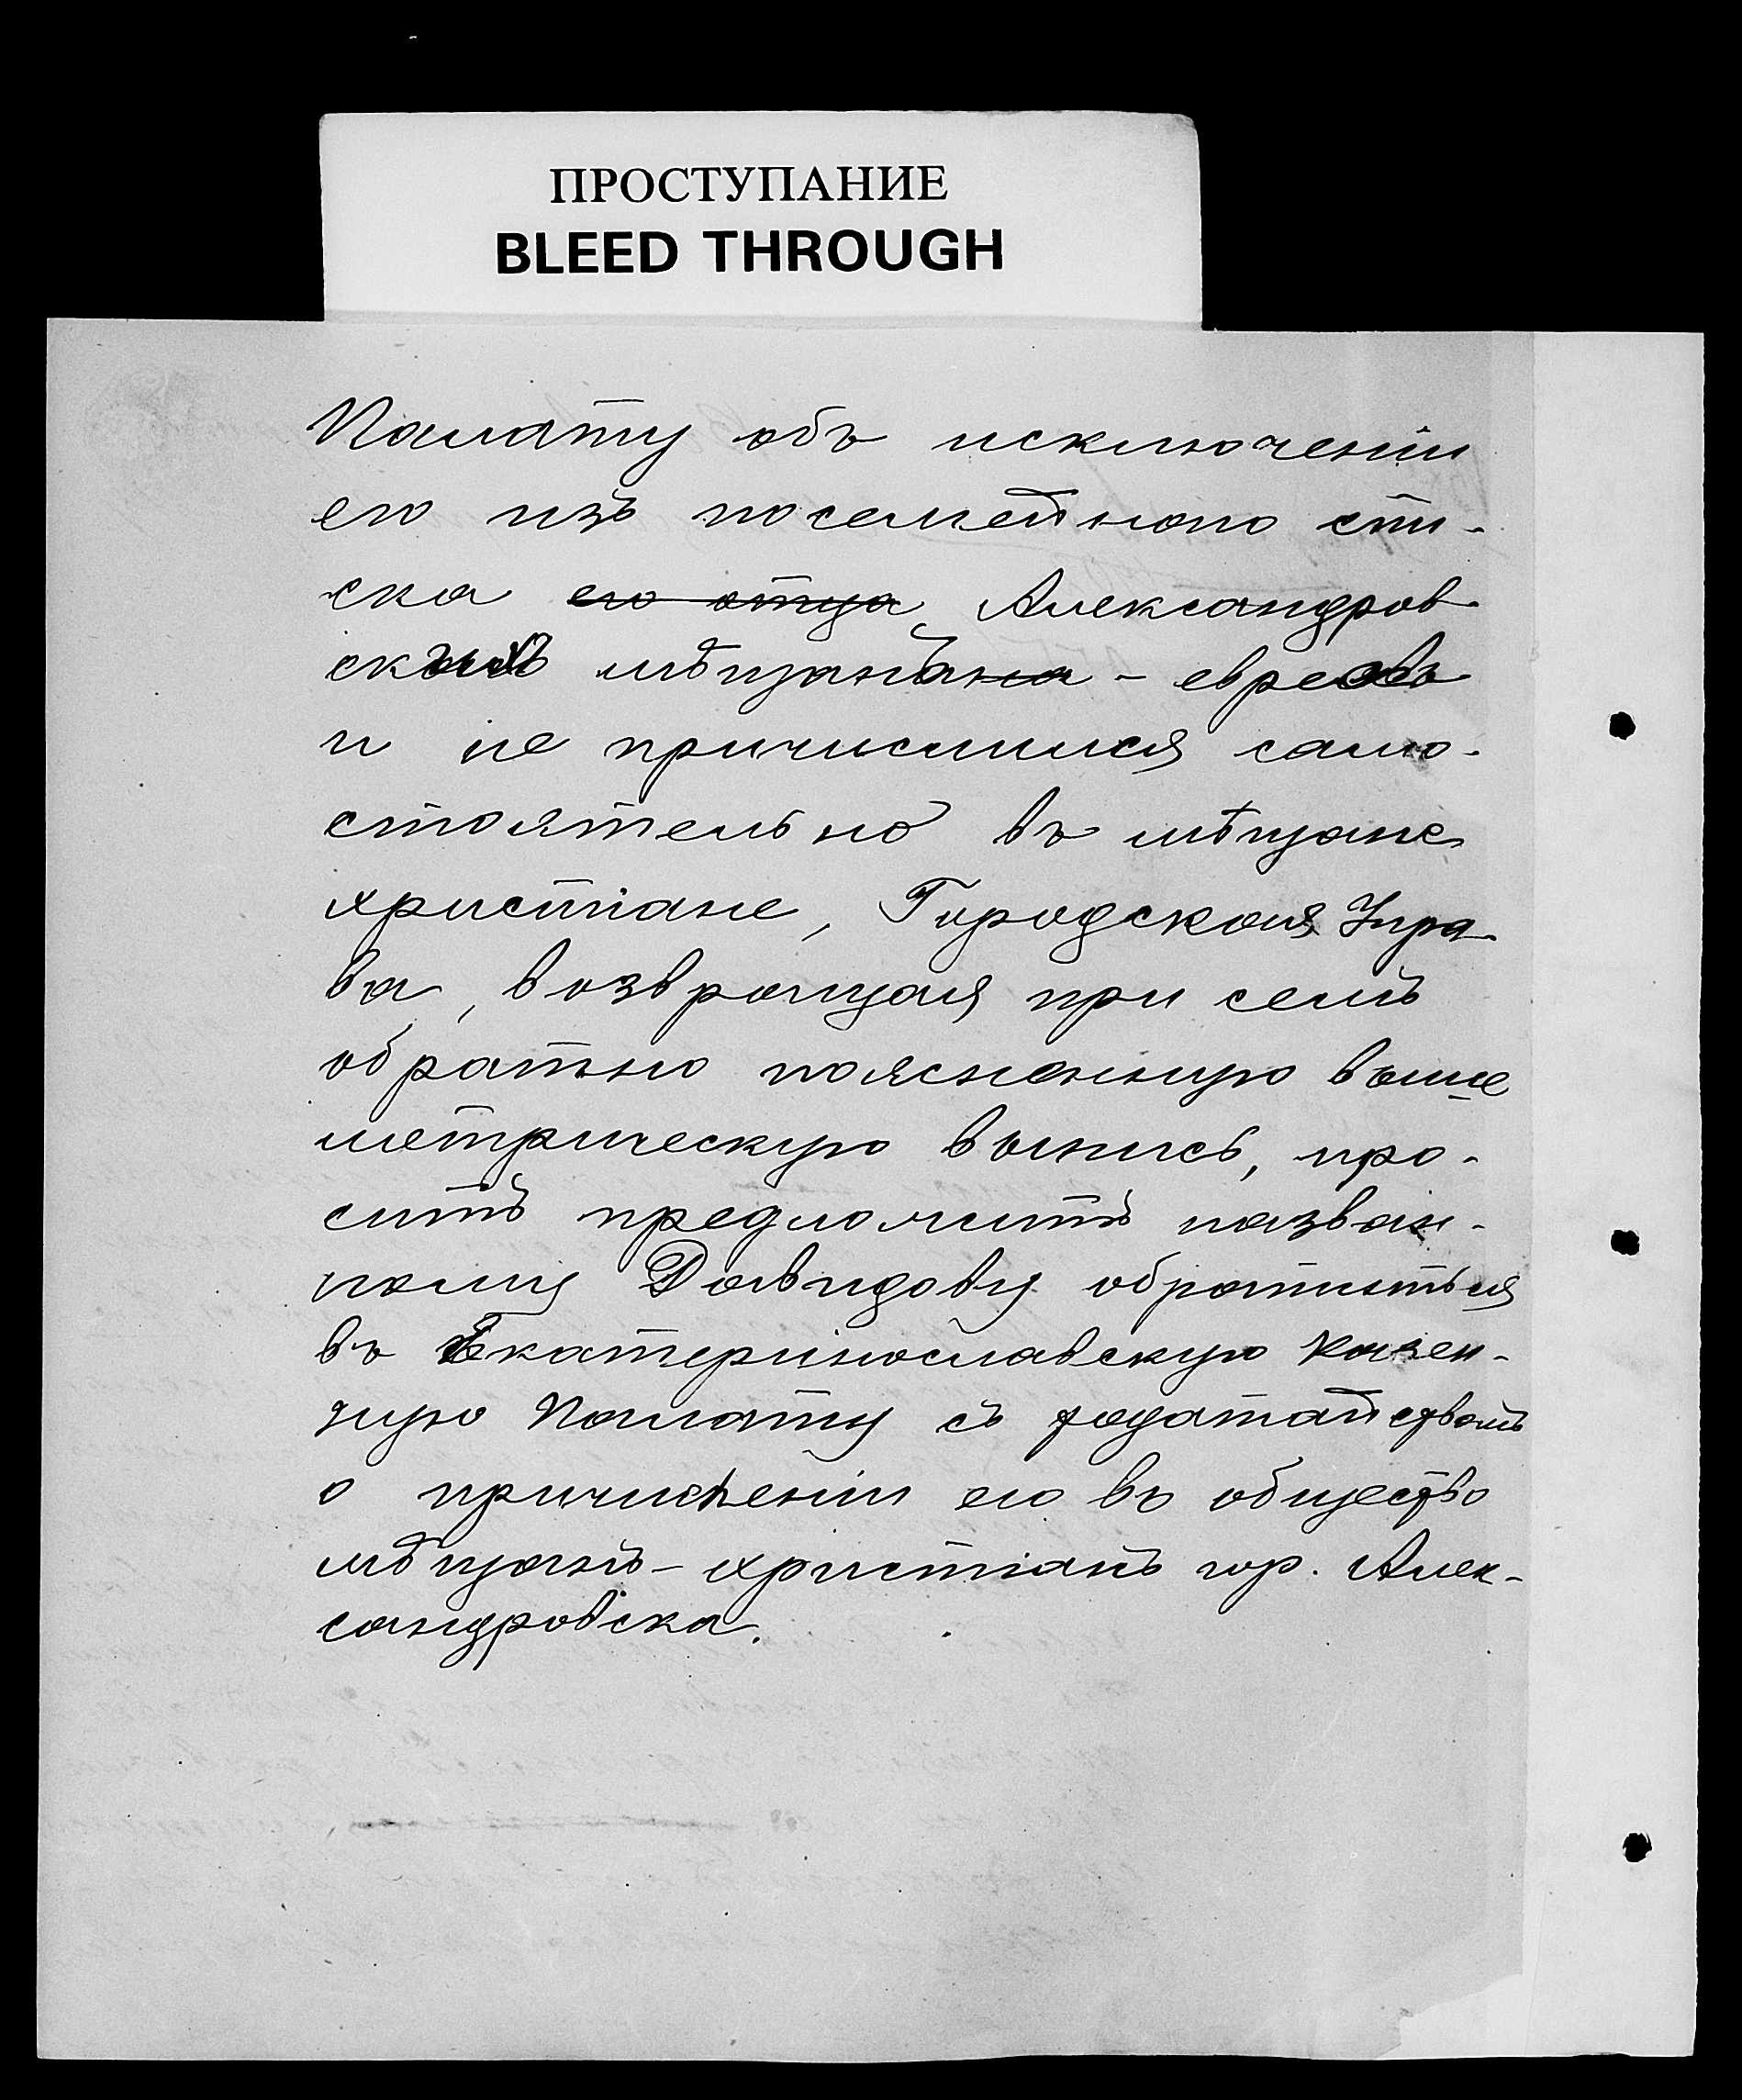 ПРОСТУПАНИЕ
BLEED THROUGH
Палату объ исключеніи
его изъ посемейнаго спи-
ска его отца Александров
скихъ мѣщанъ - евреевъ
и не причислился само-
стоятельно въ мѣщане
христіане, Городская Упра-
ва, возвращая при семъ
обратно поясненную выше
метрическую выпись, про-
ситъ предложить назван-
ному Давидову обратиться
въ Екатеринославскую Казен-
ную Палату съ ходатайствомъ
о причисленіи его въ общество
мѣщанъ - христіанъ гор. Алек-
сандровска.